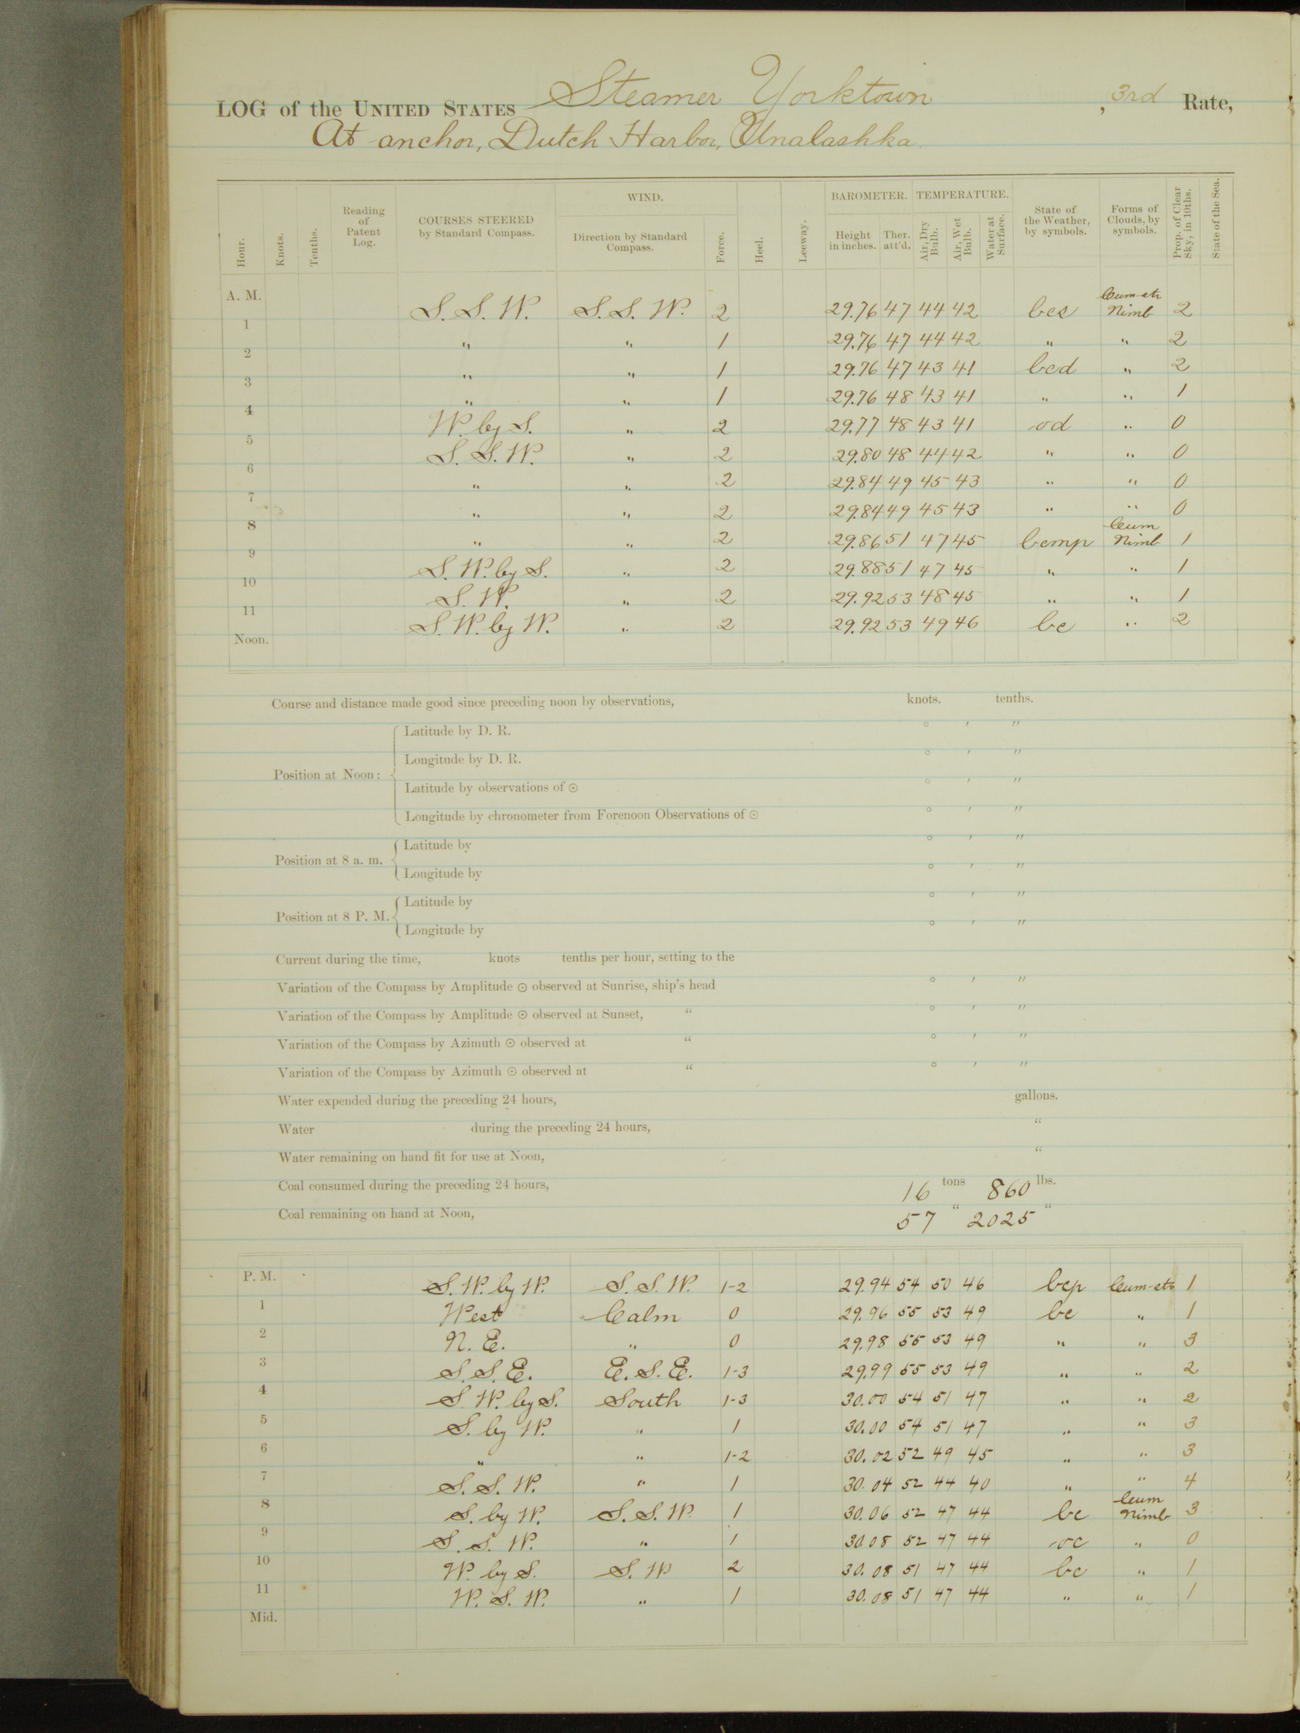 LOG of the UNITED STATES Steamer Yorktown, 3rd Rate,
At anchor, Dutch Harbor, Unalashka.
Hour. Knots. Tenths. Reading of Patent Log. COURSES STEERED by Standard Compass. WIND. Direction by Standard Compass. Force. Heel. Leeway. BAROMETER. Height in inches. Ther. att'd. TEMPERATURE. Air, Dry Bulb. Air, Wet Bulb. Water at Surface. State of the Weather, by symbols. Forms of Clouds, by symbols. Prop. of Clear Sky, in 10ths. State of the Sea.
A. M.
1 S. S. W. S. S. W. 2 29.76 47 44 42 bcs Cum-str Nimb 2
2 " " 1 29.76 47 44 42 " " 2
3 " " 1 29.76 47 43 41 bcd " 2
4 " " 1 29.76 48 43 41 " " 1
5 W. by S. " 2 29.77 48 43 41 od " 0
6 S. S. W. " 2 29.80 48 44 42 " " 0
7 " " 2 29.84 49 45 43 " " 0
8 " " 2 29.84 49 45 43 " " 0
9 " " 2 29.86 51 47 45 bcmp Cum Nimb 1
10 S. W. by S. " 2 29.88 51 47 45 " " 1
11 S. W. " 2 29.92 53 48 45 " " 1
Noon. S. W. by W. " 2 29.92 53 49 46 bc " 2
Course and distance made good since preceding noon by observations, knots. tenths.
Position at Noon: Latitude by D. R. ° ′ ″
Longitude by D. R. ° ′ ″
Latitude by observations of ☉ ° ′ ″
Longitude by chronometer from Forenoon Observations of ☉ ° ′ ″
Position at 8 a. m. Latitude by ° ′ ″
Longitude by ° ′ ″
Position at 8 P. M. Latitude by ° ′ ″
Longitude by ° ′ ″
Current during the time, knots tenths per hour, setting to the
Variation of the Compass by Amplitude ☉ observed at Sunrise, ship's head ° ′ ″
Variation of the Compass by Amplitude ☉ observed at Sunset, " ° ′ ″
Variation of the Compass by Azimuth ☉ observed at " ° ′ ″
Variation of the Compass by Azimuth ☉ observed at " ° ′ ″
Water expended during the preceding 24 hours, gallons.
Water during the preceding 24 hours, "
Water remaining on hand fit for use at Noon, "
Coal consumed during the preceding 24 hours, 16 tons 860 lbs.
Coal remaining on hand at Noon, 57 " 2025 "
P. M.
1 S. W. by W. S. S. W. 1-2 29.94 54 50 46 bcp Cum-str 1
2 West Calm 0 29.96 55 53 49 bc " 1
3 N. E. " 0 29.98 55 53 49 " " 3
4 S. S. E. E. S. E. 1-3 29.99 55 53 49 " " 2
5 S. W. by S. South 1-3 30.00 54 51 47 " " 2
6 S. by W. " 1 30.00 54 51 47 " " 3
7 " " 1-2 30.02 52 49 45 " " 3
8 S. S. W. " 1 30.04 52 44 40 " " 4
9 S. by W. S. S. W 1 30.06 52 47 44 bc Cum Nimb 3
10 S. S. W. " 1 30.08 52 47 44 oc " 0
11 W. by S. S. W 2 30.08 51 47 44 bc " 1
Mid. W. S. W. " 1 30.08 51 47 44 " " 1